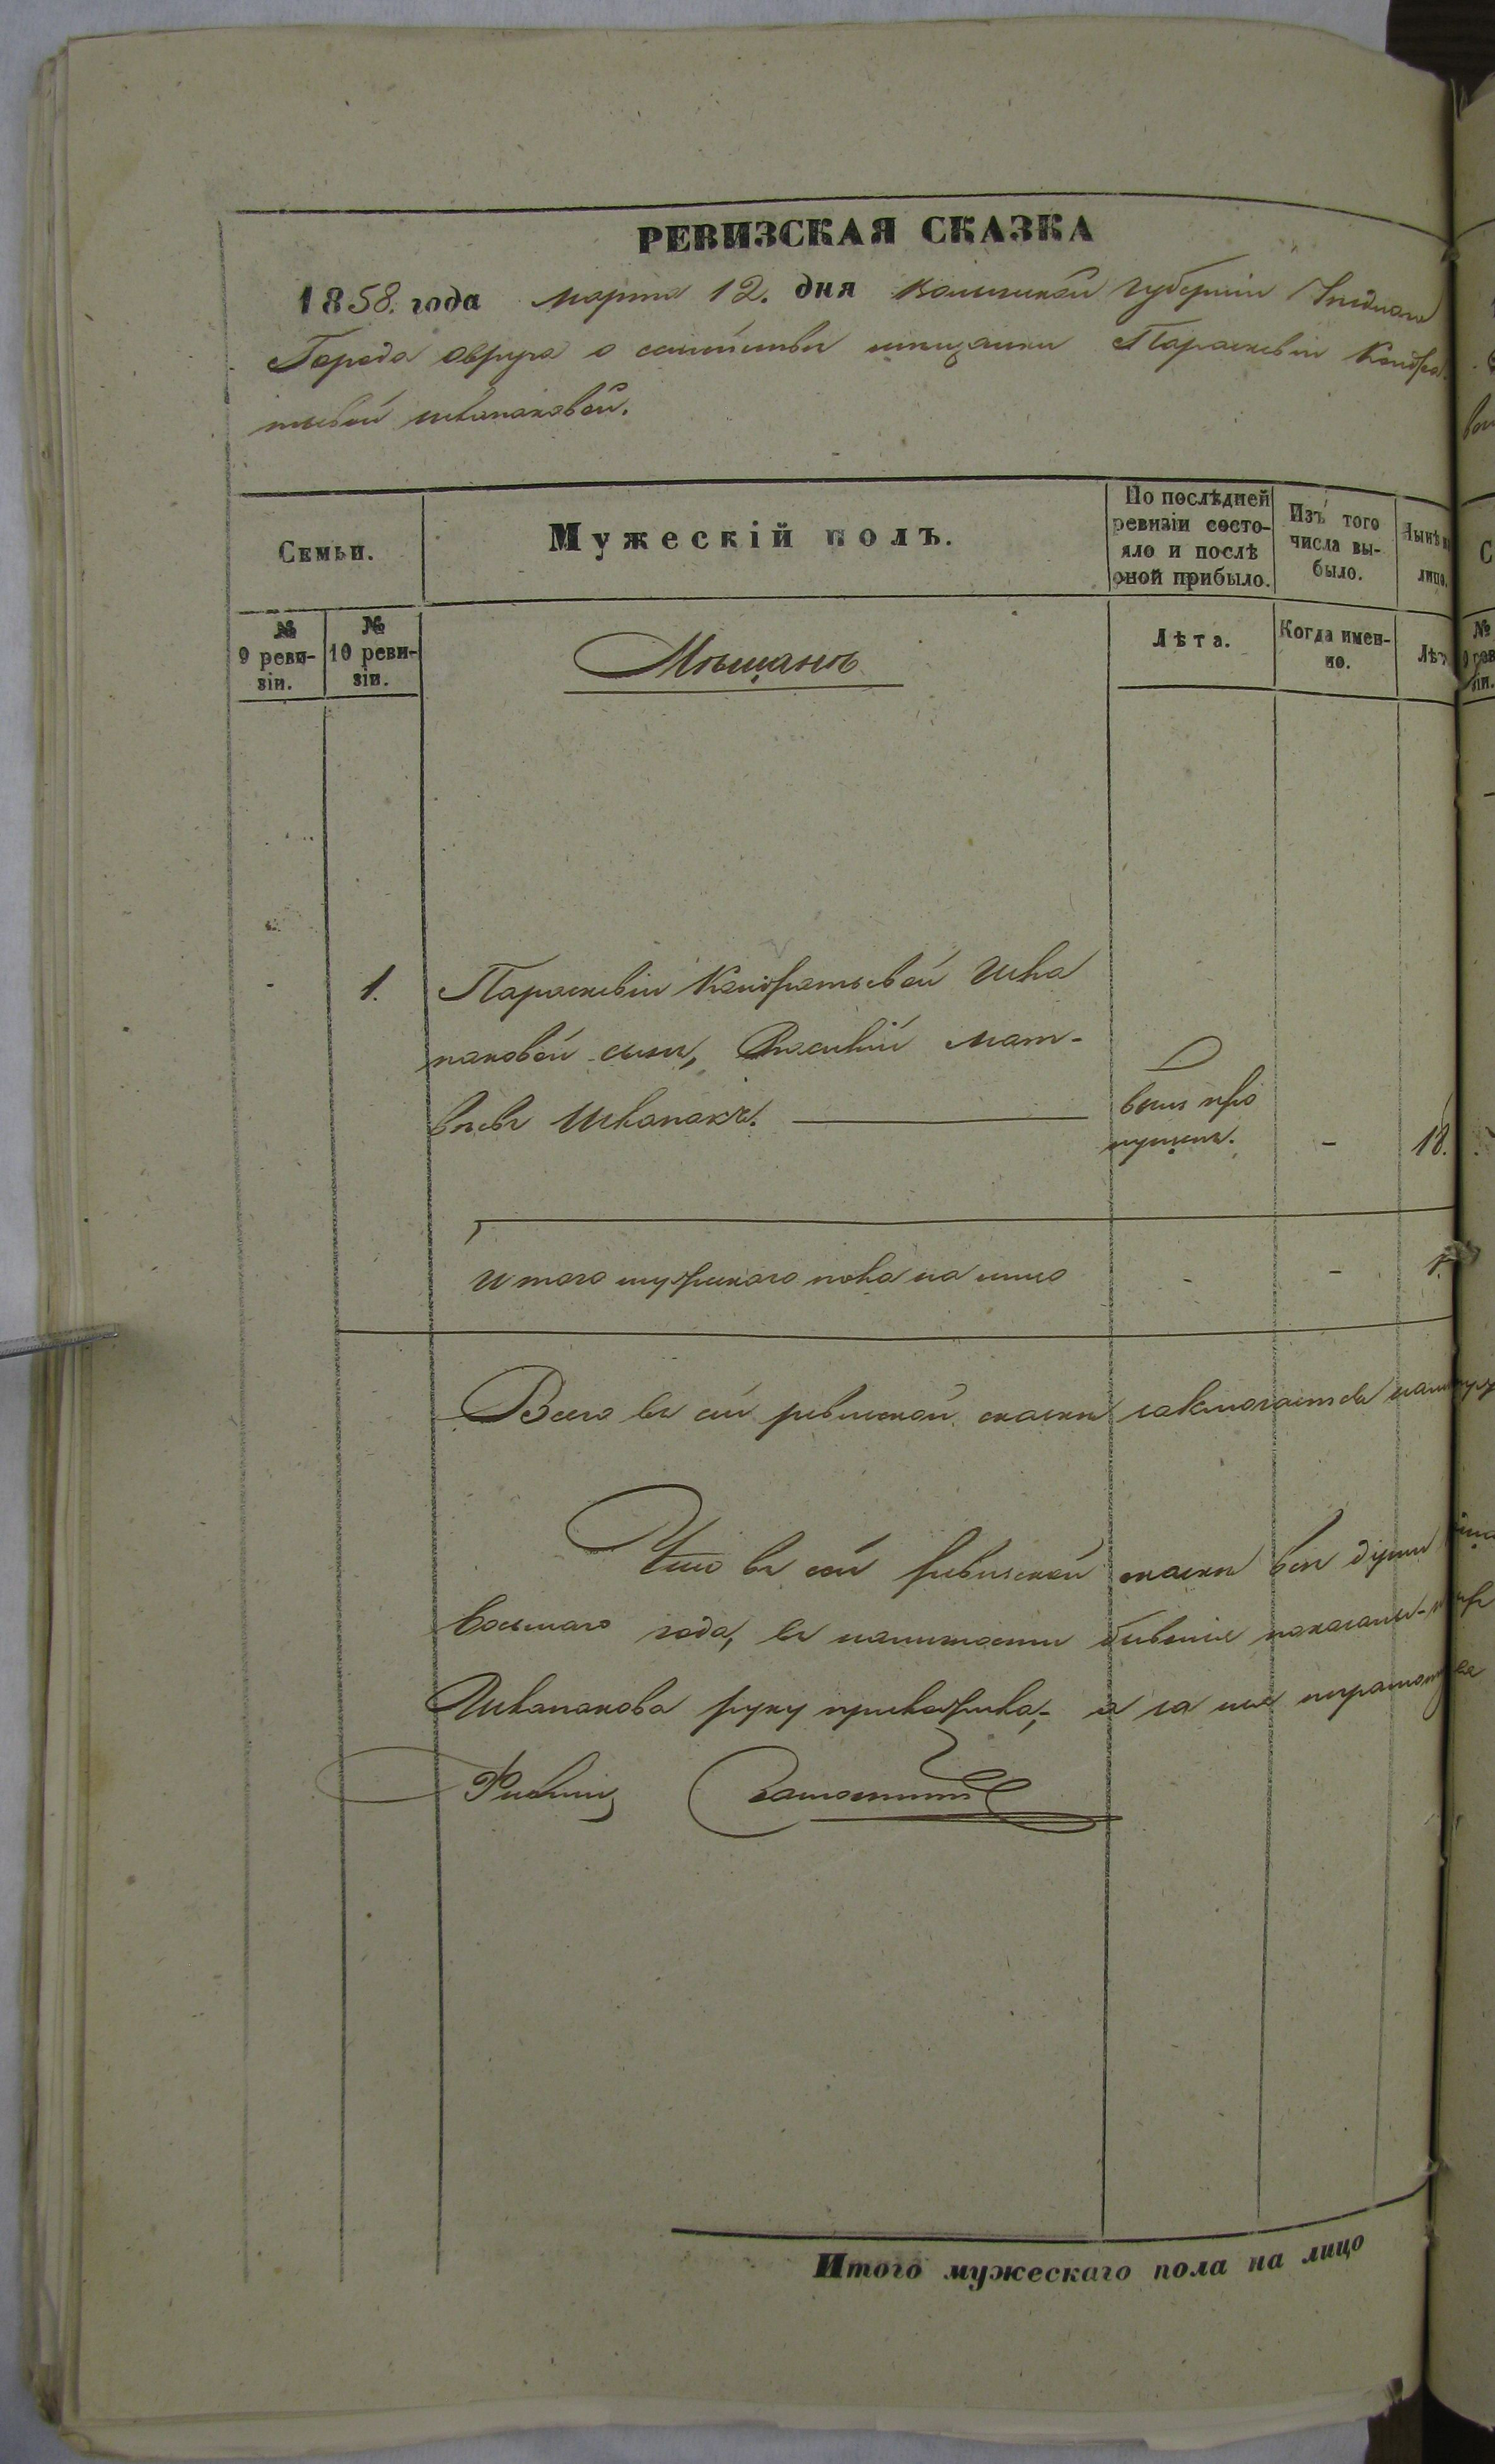 РЕВИЗСКАЯ СКАЗКА
1858. года марта 12. дня Волынской губерніи Уѣзднаго
Города Овруча о семействѣ мѣщанки Параскевіи Кондра-
тьевой Шкапаковой.
Семьи.
Мужескій полъ.
По послѣдней ревизіи состо-
яло и послѣ
оной прибыло.
Изъ того
числа вы-
было.
Нынѣ н
лицо.
№
9 реви-
зіи.
№
10 реви-
зіи.
Мѣщанъ
Лѣта.
Когда имен-
но.
Лѣт
- 1. Параскевіи Кондратьевой Шка
паковой сынъ, Василій Мат-
вѣевъ Шкапакъ. былъ про
пущенъ. - 18.
Итого мужескаго пола на лицо - - 1.
Всего въ сей ревизской сказкѣ заключается
Что въ сей ревизской сказкѣ всѣ души
восьмаго года, въ наличности бывшіе показаны
Шкапакова руку приложила, а за нее неграмотную
Итого мужескаго пола на лицо